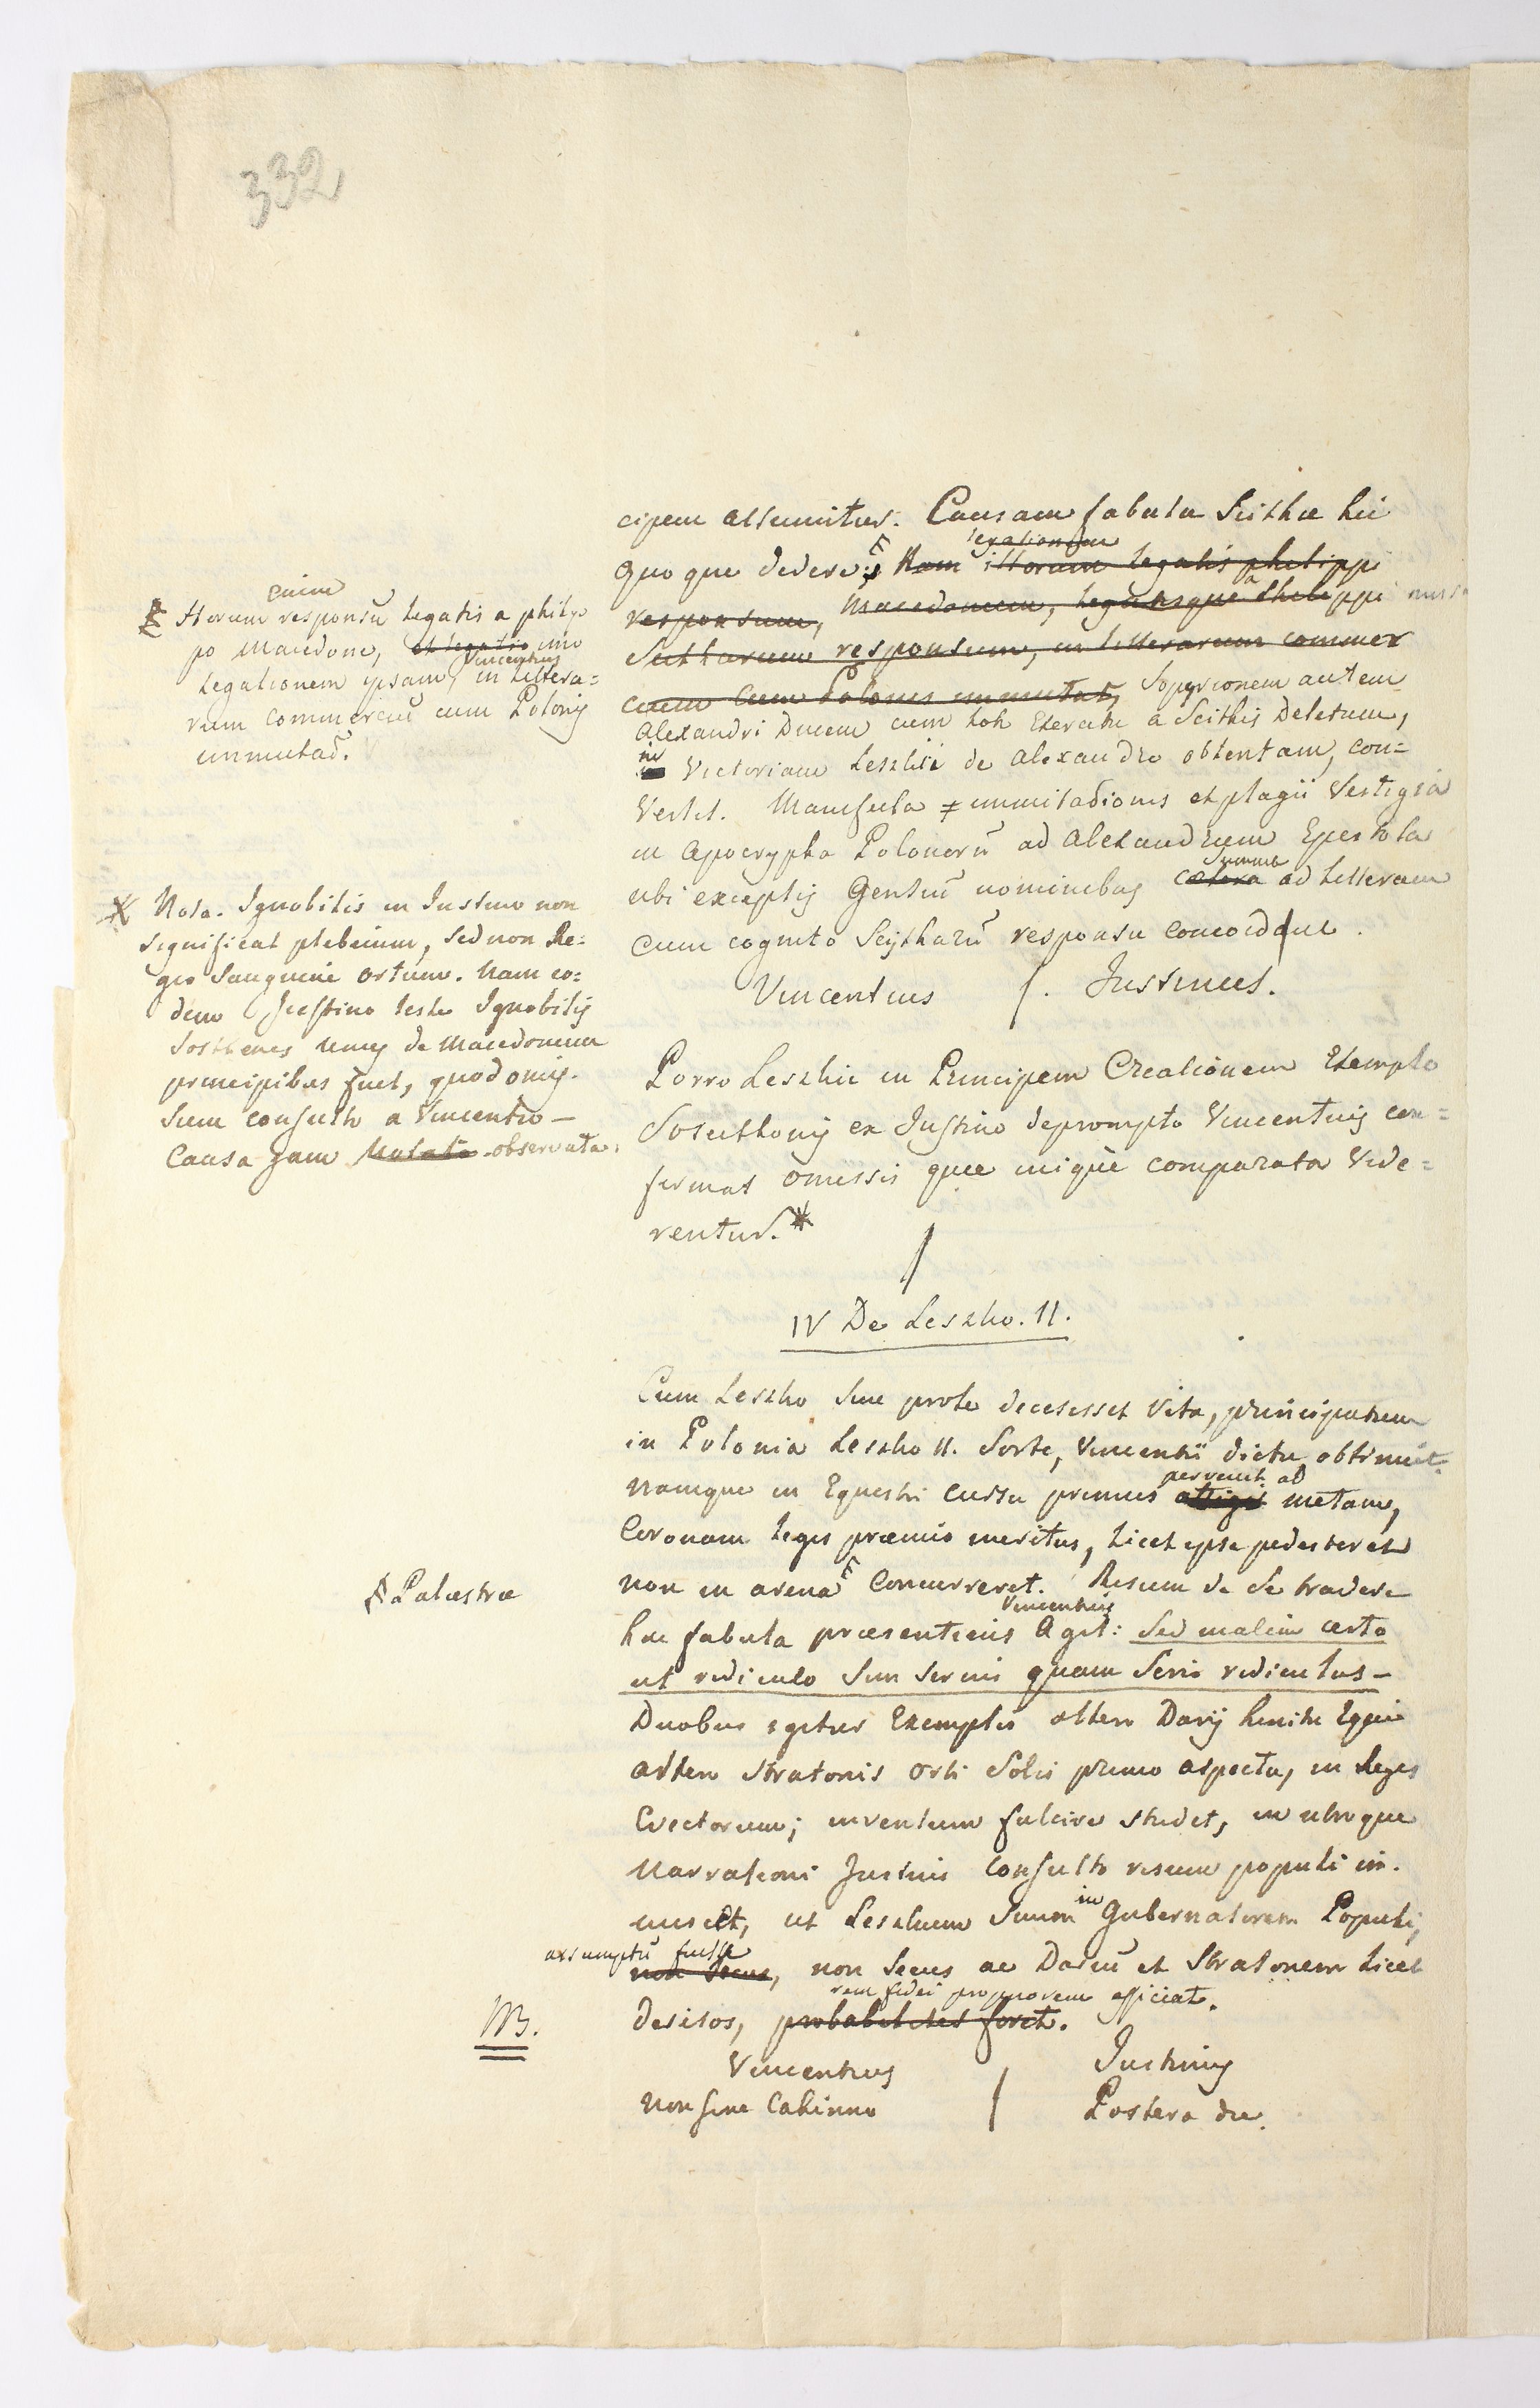 332
cipem assumitur. Causam fabulæ Scithæ hic
quoque dedere; Nam illorum legatis philippi
legationem
responsum, Macedonem, legatisque a Philippi
Scitharum responsum, in litterarum commer
cium cum Polonis immutat, Sopyrionem autem
Alexandri Ducem cum toto Exercitu a Scithis Deletum,
in Victoriam Leszkii de Alexandro obtentam, con=
vertit. Manifesta immitationis et plagii Vestigia
in Apocrypha Polonorū ad Alexandrum Epistola
ubi exceptis Gentiū nominibus cætera ad litteram
summe
cum cognito Scytharū responsu concordant.
Vincentius /. Justinus.
Porro Leszkii in Principem Creationem Exemplo
ex Justino deprompto Vincentius con=
firmat omissis quæ inique comparata vide=
rentur.*
/
IV De Leszko. II.
Cum Leszko sine prole decesisset Vita, principatum
in Polonia Leszko II. Sorte, Vincentii dictu obtinuit.
Namque in Equestri cursu primus attigit metam,
pervenit ad
Coronam legis præmio meritus, licet ipse pedester et
non in arena concurreret. Risum de se tradere
hac fabula præsentiens Agit: Sed malim certo
Vincentius
ut ridiculo sim serius quam serio ridiculus –
Duobus igitur Exemplis altero Darij hinitu Equi
altero Stratonis orti Solis primo aspectu, in Reges
Evectorum; inventum fulcire studet, in utroque
Narrationi Justini consulto risum populi im.
miscet, ut Leszkum Suum in Gubernatorem Populi,
assumptū fuisse
non secus, non secus ac Dariū et Stratonem licet
derisos, probabilius foret.
rem fidei propriorem efficiat.
Vincentius / Justinus
Non sine Cahinno / Postera die.
enim
Horum responsū legatis a philip
po Macedone, et legatio imo
Vincentius
legationem ipsam, in littera=
rum commerciū cum Polonis
immutat.
* Nota. Ignobilis in Justino non
significat plebeium, sed non Re=
gio Sanguine ortum. Nam eo=
dem Justino teste Ignobilis
Sosthenes unus de Macedonum
principibus fuit, quod omis=
sum consulto a Vincentio –
Causa jam Nutata observata.
Palæstræ
NB.